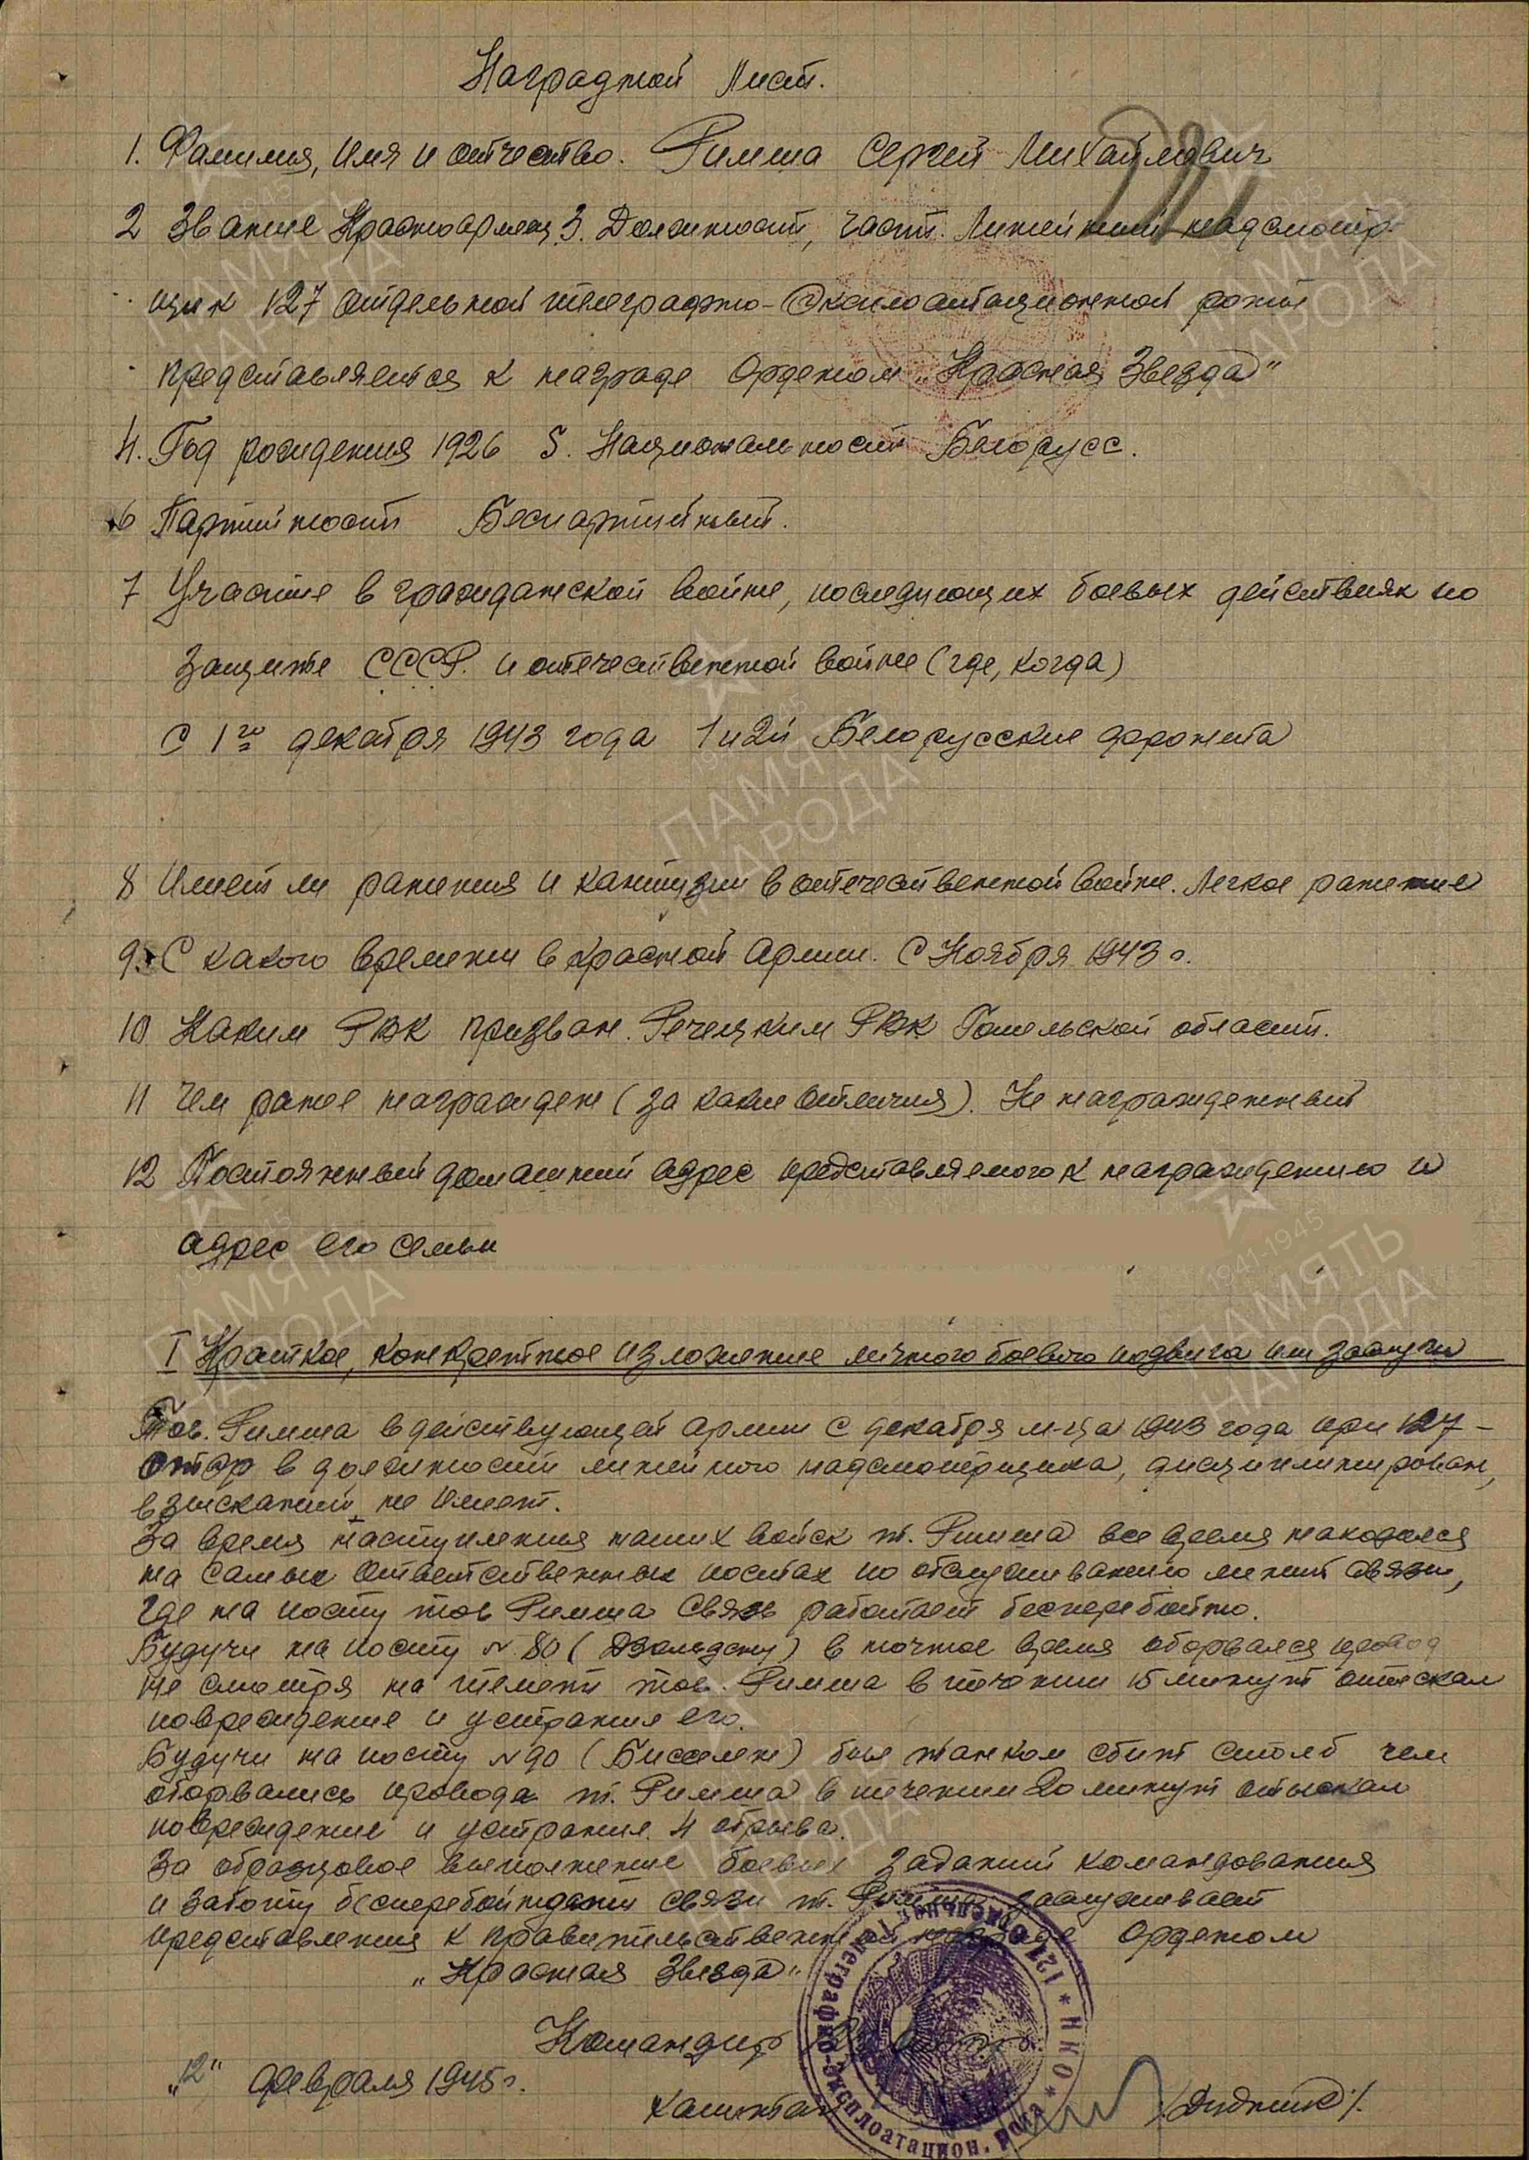 Наградной Лист.
1. Фамилия, имя и отчество. Римша Сергей Михайлович
2 Звание Красноармеец 3. Должность, часть. Линейный надсмотр-
щик 127 отдельной телеграфно-эксплоатационной роты
представляется к награде Орденом „Красная Звезда"
4. Год рождения 1926 5. Национальность Белорусс.
6 Партийность Беспартийный.
7 Участие в гражданской войне, последующих боевых действиях по
защите СССР. и отечественной войне (где, когда)
С 1го декабря 1943 года 1 и 2й Белорусские фронта
8 Имеет ли ранения и контузии в отечественной войне. Легкое ранение
9. С какого времени в красной армии. С Ноября 1943 г.
10 Каким РВК призван. Речецким РВК Гомельской области.
11 Чем ранее награжден (за какие отличия). Не награжденный
12 Постоянный домашний адрес представляемого к награждению и
адрес его семьи
I Краткое, конкретное изложение личного боевого подвига или заслуги
Тов. Римша в действующей армии с декабря м-ца 1943 года при 127-
ОТЭР в должности линейного надсмотрщика, дисциплинирован,
взысканий не имеет.
За время наступления наших войск т. Римша все время находился
на самых ответственных постах по обслуживанию линий связи,
где на посту тов Римша связь работает бесперебойно.
Будучи на посту № 80 () в ночное время оборвался провод
не смотря на темень тов. Римша в течении 15 минут отыскал
повреждение и устранил его.
Будучи на посту № 90 (Бисселен) был танком сбит столб чем
оборвались провода т. Римша в течении 20 минут отыскал
повреждение и устранил 4 обрыва.
За образцовое выполнение боевых заданий командования
и заботу бесперебойности связи т. Римша заслуживает
представления к правительственной награде орденом
„Красная Звезда"
Командир
„12" февраля 1945 г.
капитан /Дудник/.
* НКО * 127 Отдельная телеграфно-эксплоатацион. рота
ПАМЯТЬ НАРОДА
1941-1945